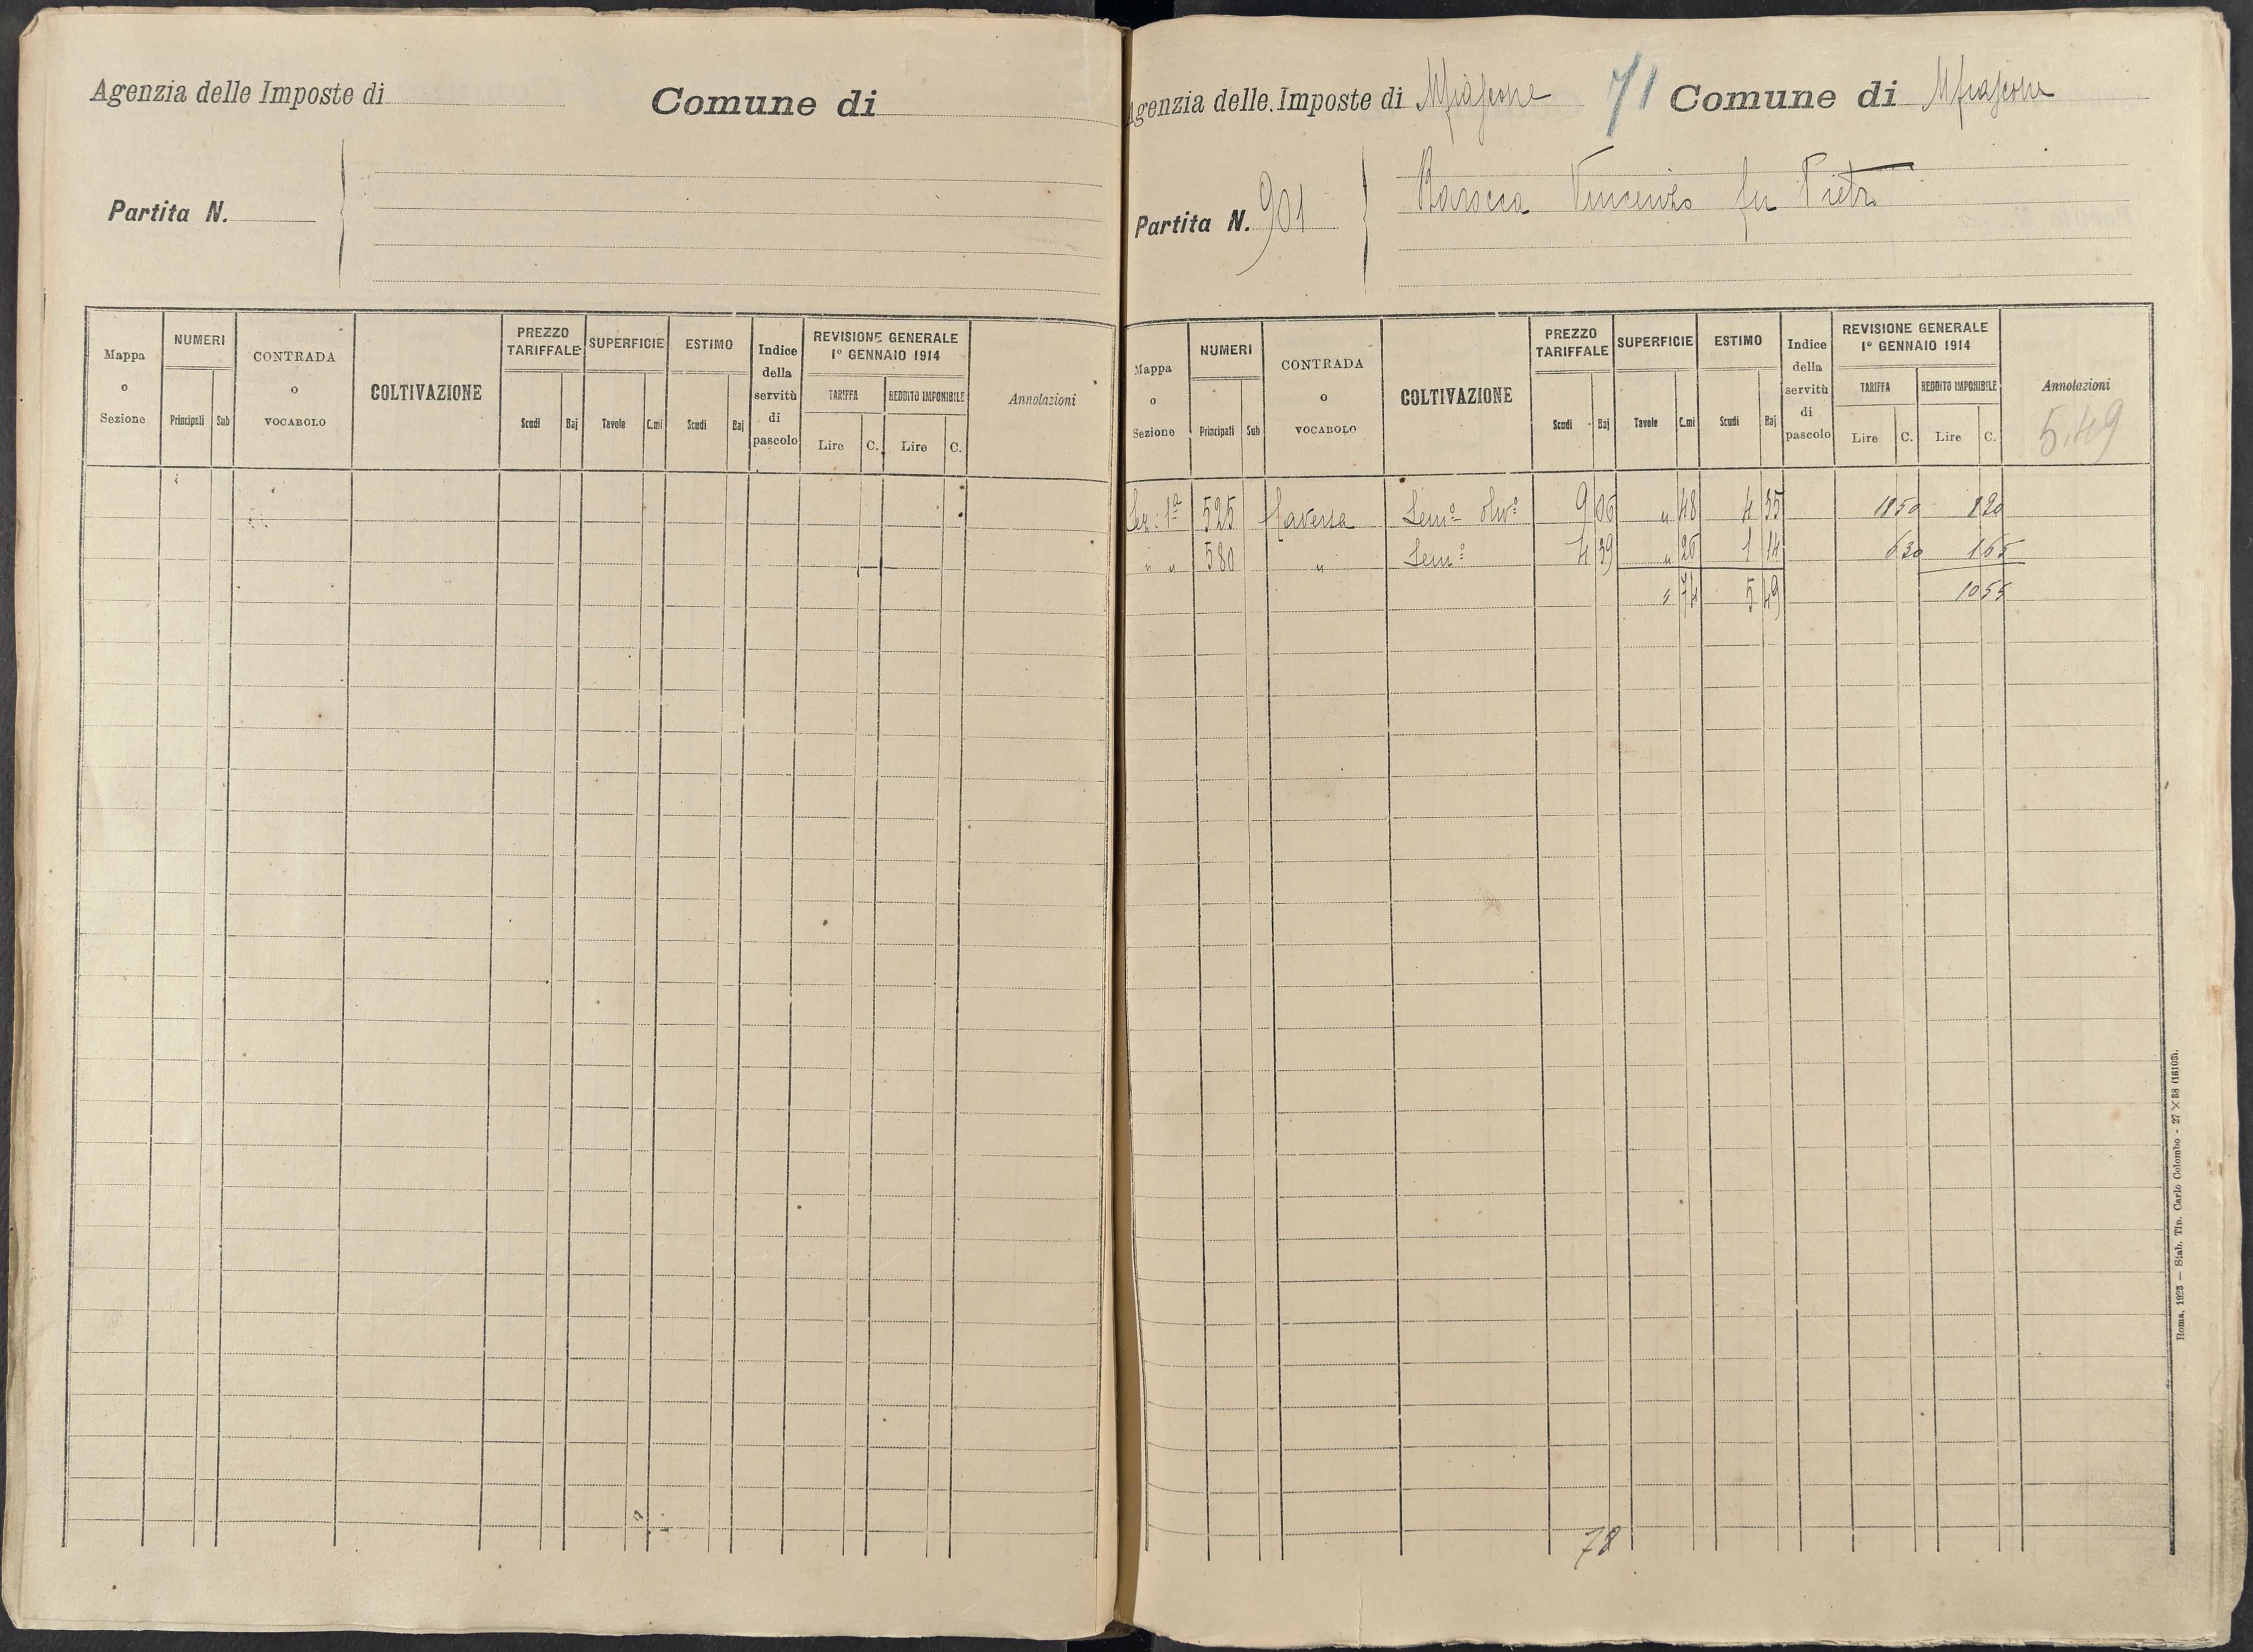 Agenzia delle Imposte di
Comune di
Partita N.
Mappa o Sezione
NUMERI
Principali Sub
CONTRADA o VOCABOLO
COLTIVAZIONE
PREZZO TARIFFALE
Scudi Baj
SUPERFICIE
Tavole C.mi
ESTIMO
Scudi Baj
Indice della servitù di pascolo
REVISIONE GENERALE
1º GENNAIO 1914
TARIFFA REDDITO IMPONIBILE
Lire C. Lire C.
Annotazioni
Agenzia delle Imposte di Mfiascone 71 Comune di Mfiascone
Partita N. 901
Barocca Vincenzo fu Pietro
Mappa o Sezione
NUMERI
Principali Sub
CONTRADA o VOCABOLO
COLTIVAZIONE
PREZZO TARIFFALE
Scudi Baj
SUPERFICIE
Tavole C.mi
ESTIMO
Scudi Baj
Indice della servitù di pascolo
REVISIONE GENERALE
1º GENNAIO 1914
TARIFFA REDDITO IMPONIBILE
Lire C. Lire C.
Annotazioni
5.49
Sez: 1ª 525 Semº olivº 9 06 " 48 4 35 1850 820
" " 580 " Semº 4 39 " 26 1 14 630 165
" 74 5 49 1055
78
Roma, 1923 — Stab. Tip. Carlo Colombo - 27 × 38 (16103).